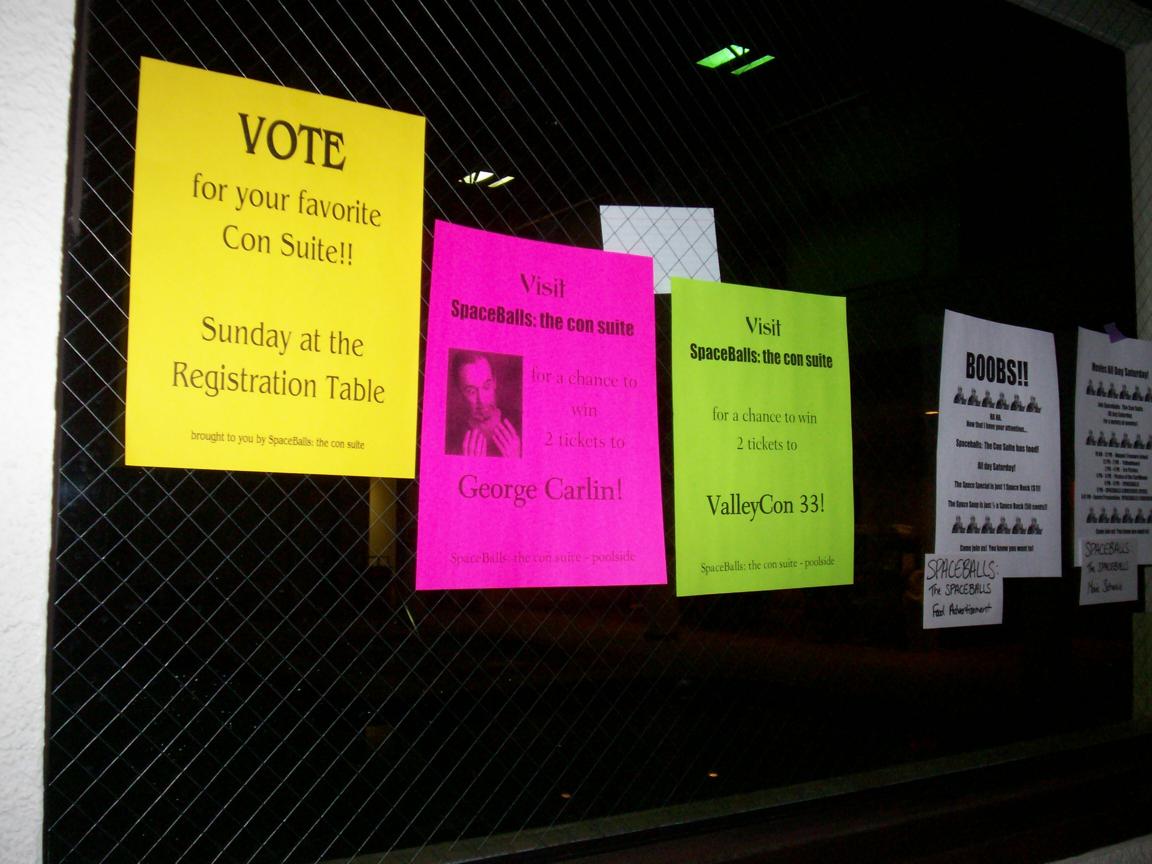 VOTE
for your favorite
Con Suite!!
Sunday at the
Registration Table
brought to you by SpaceBalls: the con suite
Visit
SpaceBalls: the con suite
for a chance to
win
2 tickets to
George Carlin!
SpaceBalls: the con suite - poolside
Visit
SpaceBalls: the con suite
for a chance to win
2 tickets to
ValleyCon 33!
SpaceBalls: the con suite - poolside
BOOBS!!
HA HA.
Now that I have your attention...
Spaceballs: The Con Suite has food!
All day Saturday!
The Space Special is just 1 Space Buck ($1)!
The Space Soup is just ½ a Space Buck (50 cents)!
Come join us! You know you want to!
SPACEBALLS:
The SPACEBALLS
Food Advertisement
Movies All Day Saturday!
Join Spaceballs: The Con Suite
All day Saturday
Come join us! You know you want to!
SPACEBALLS:
The SPACEBALLS
Movie Schedule